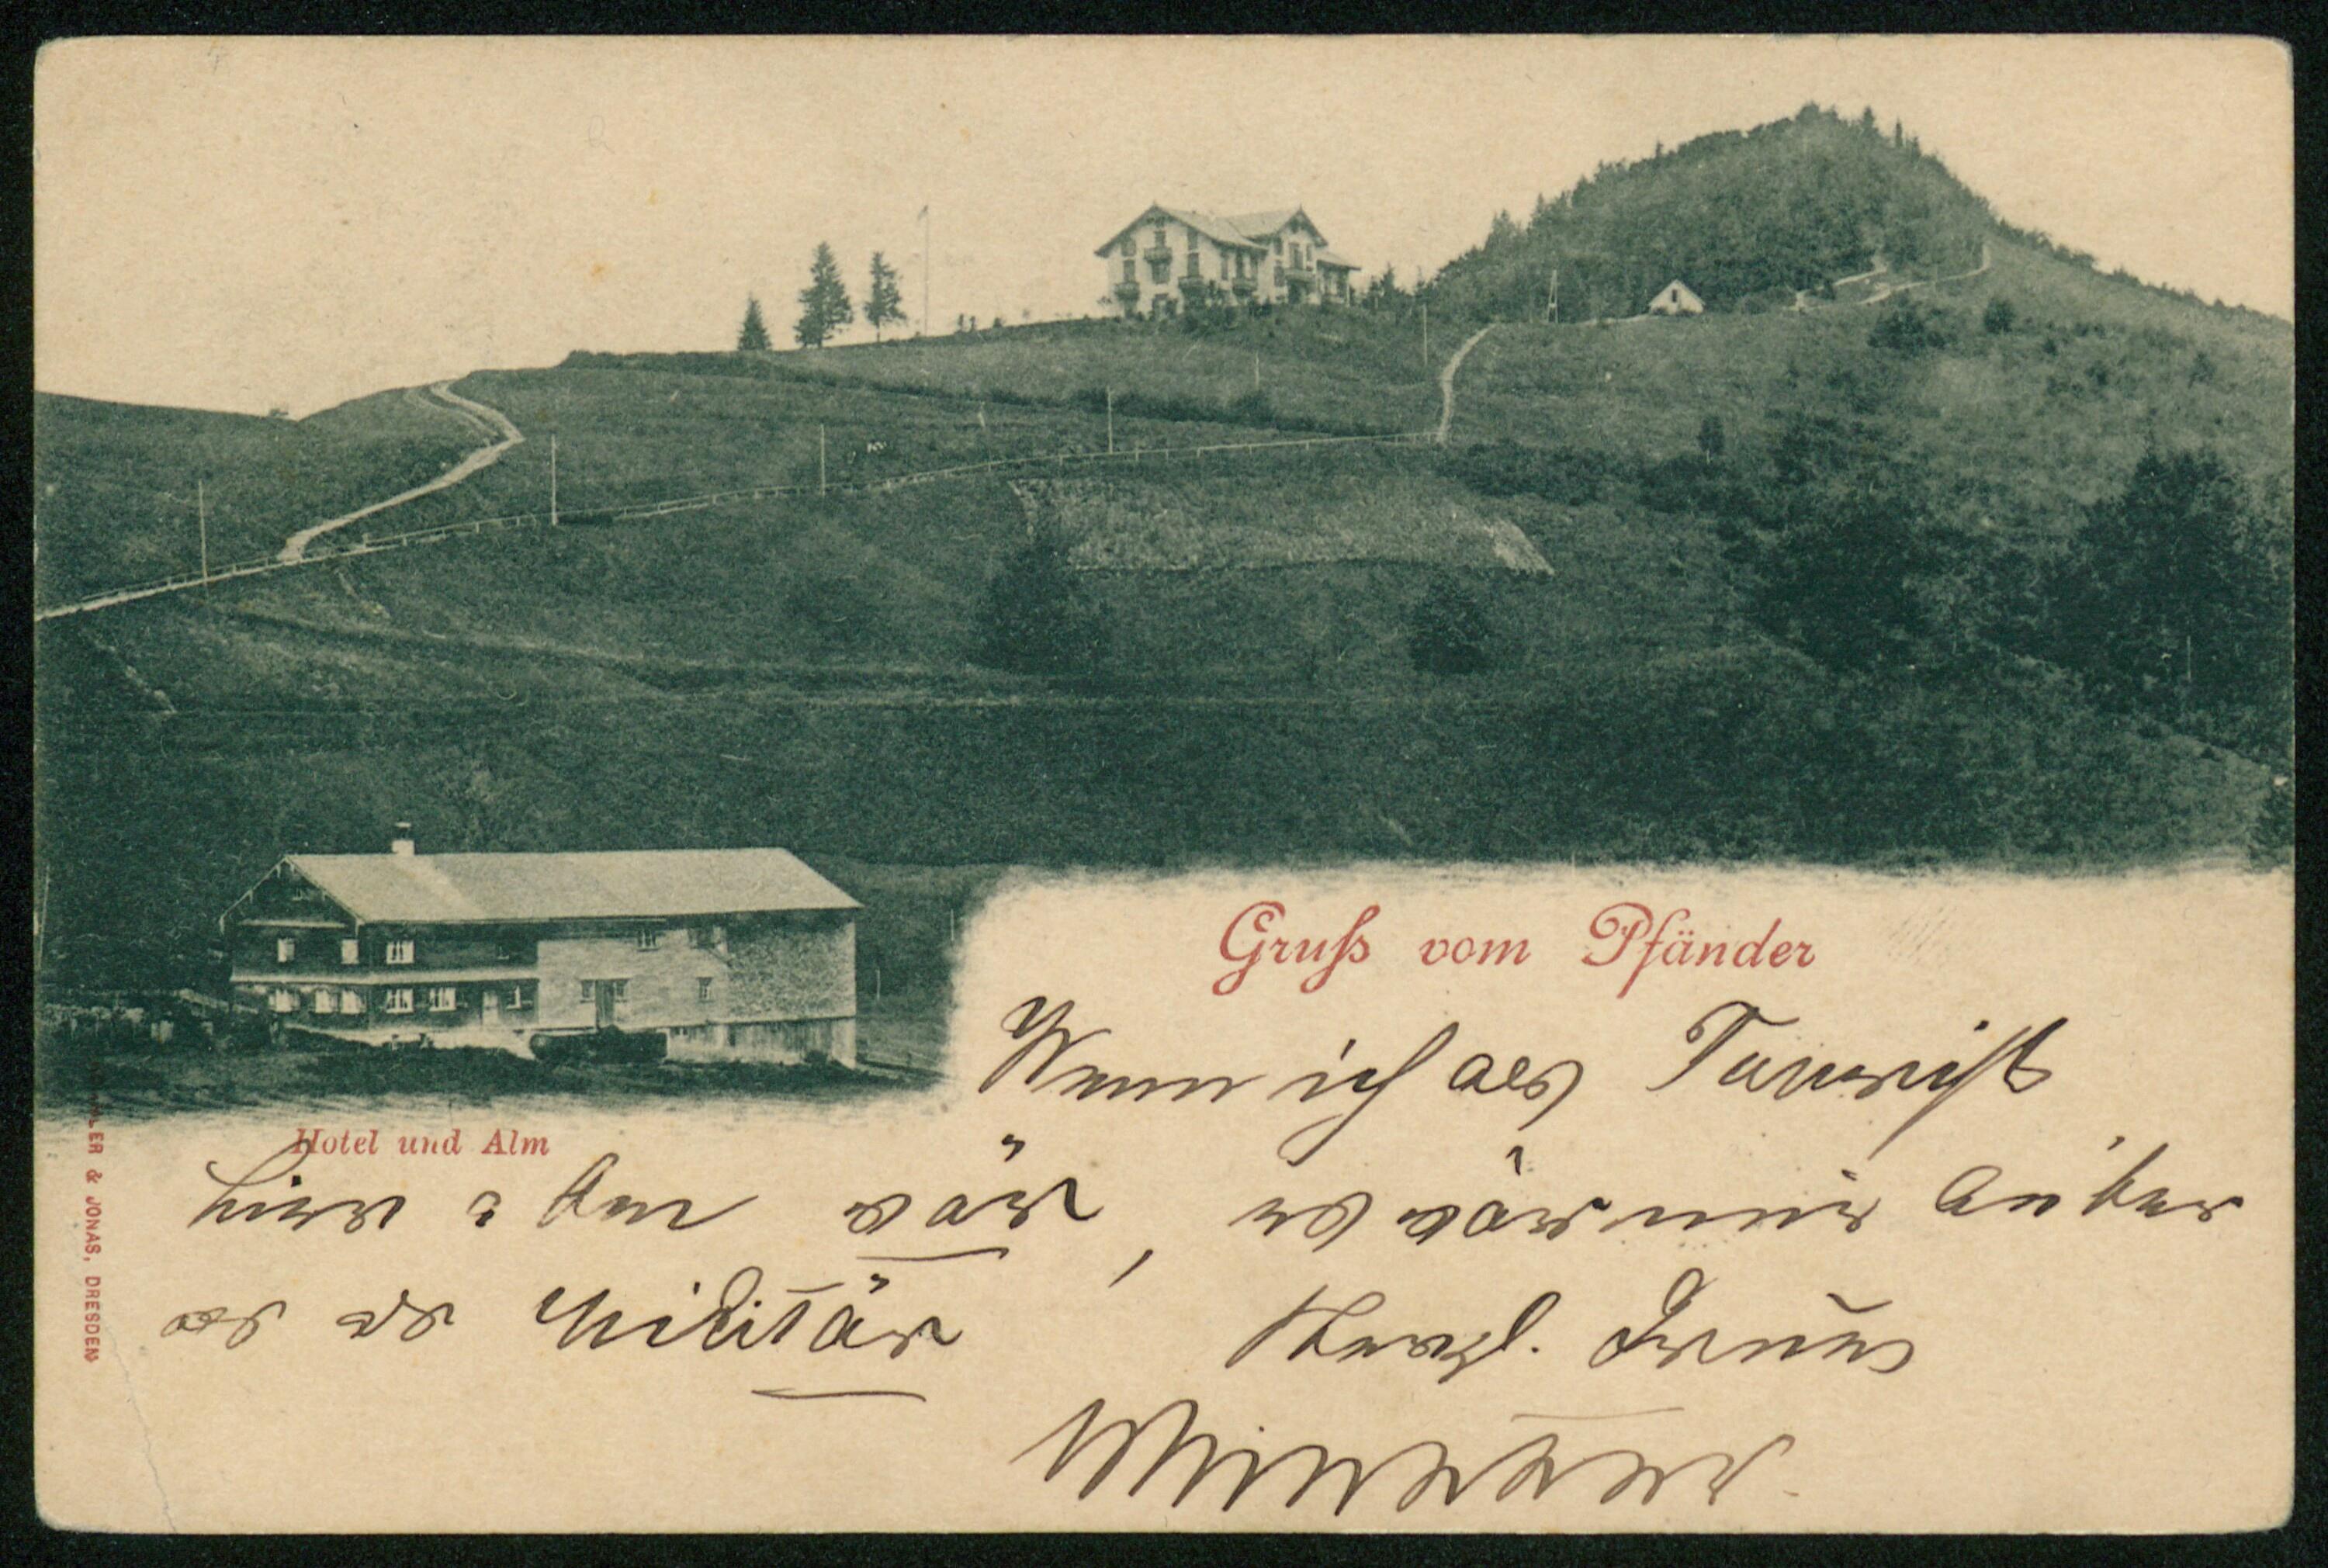 Gruſs vom Pfänder
Wenn ich als Tourist
Hotel und Alm
hier oben wär, es wär mir lieber
als als Militär
Herzl. Gruss
LER & JONAS, DRESDEN